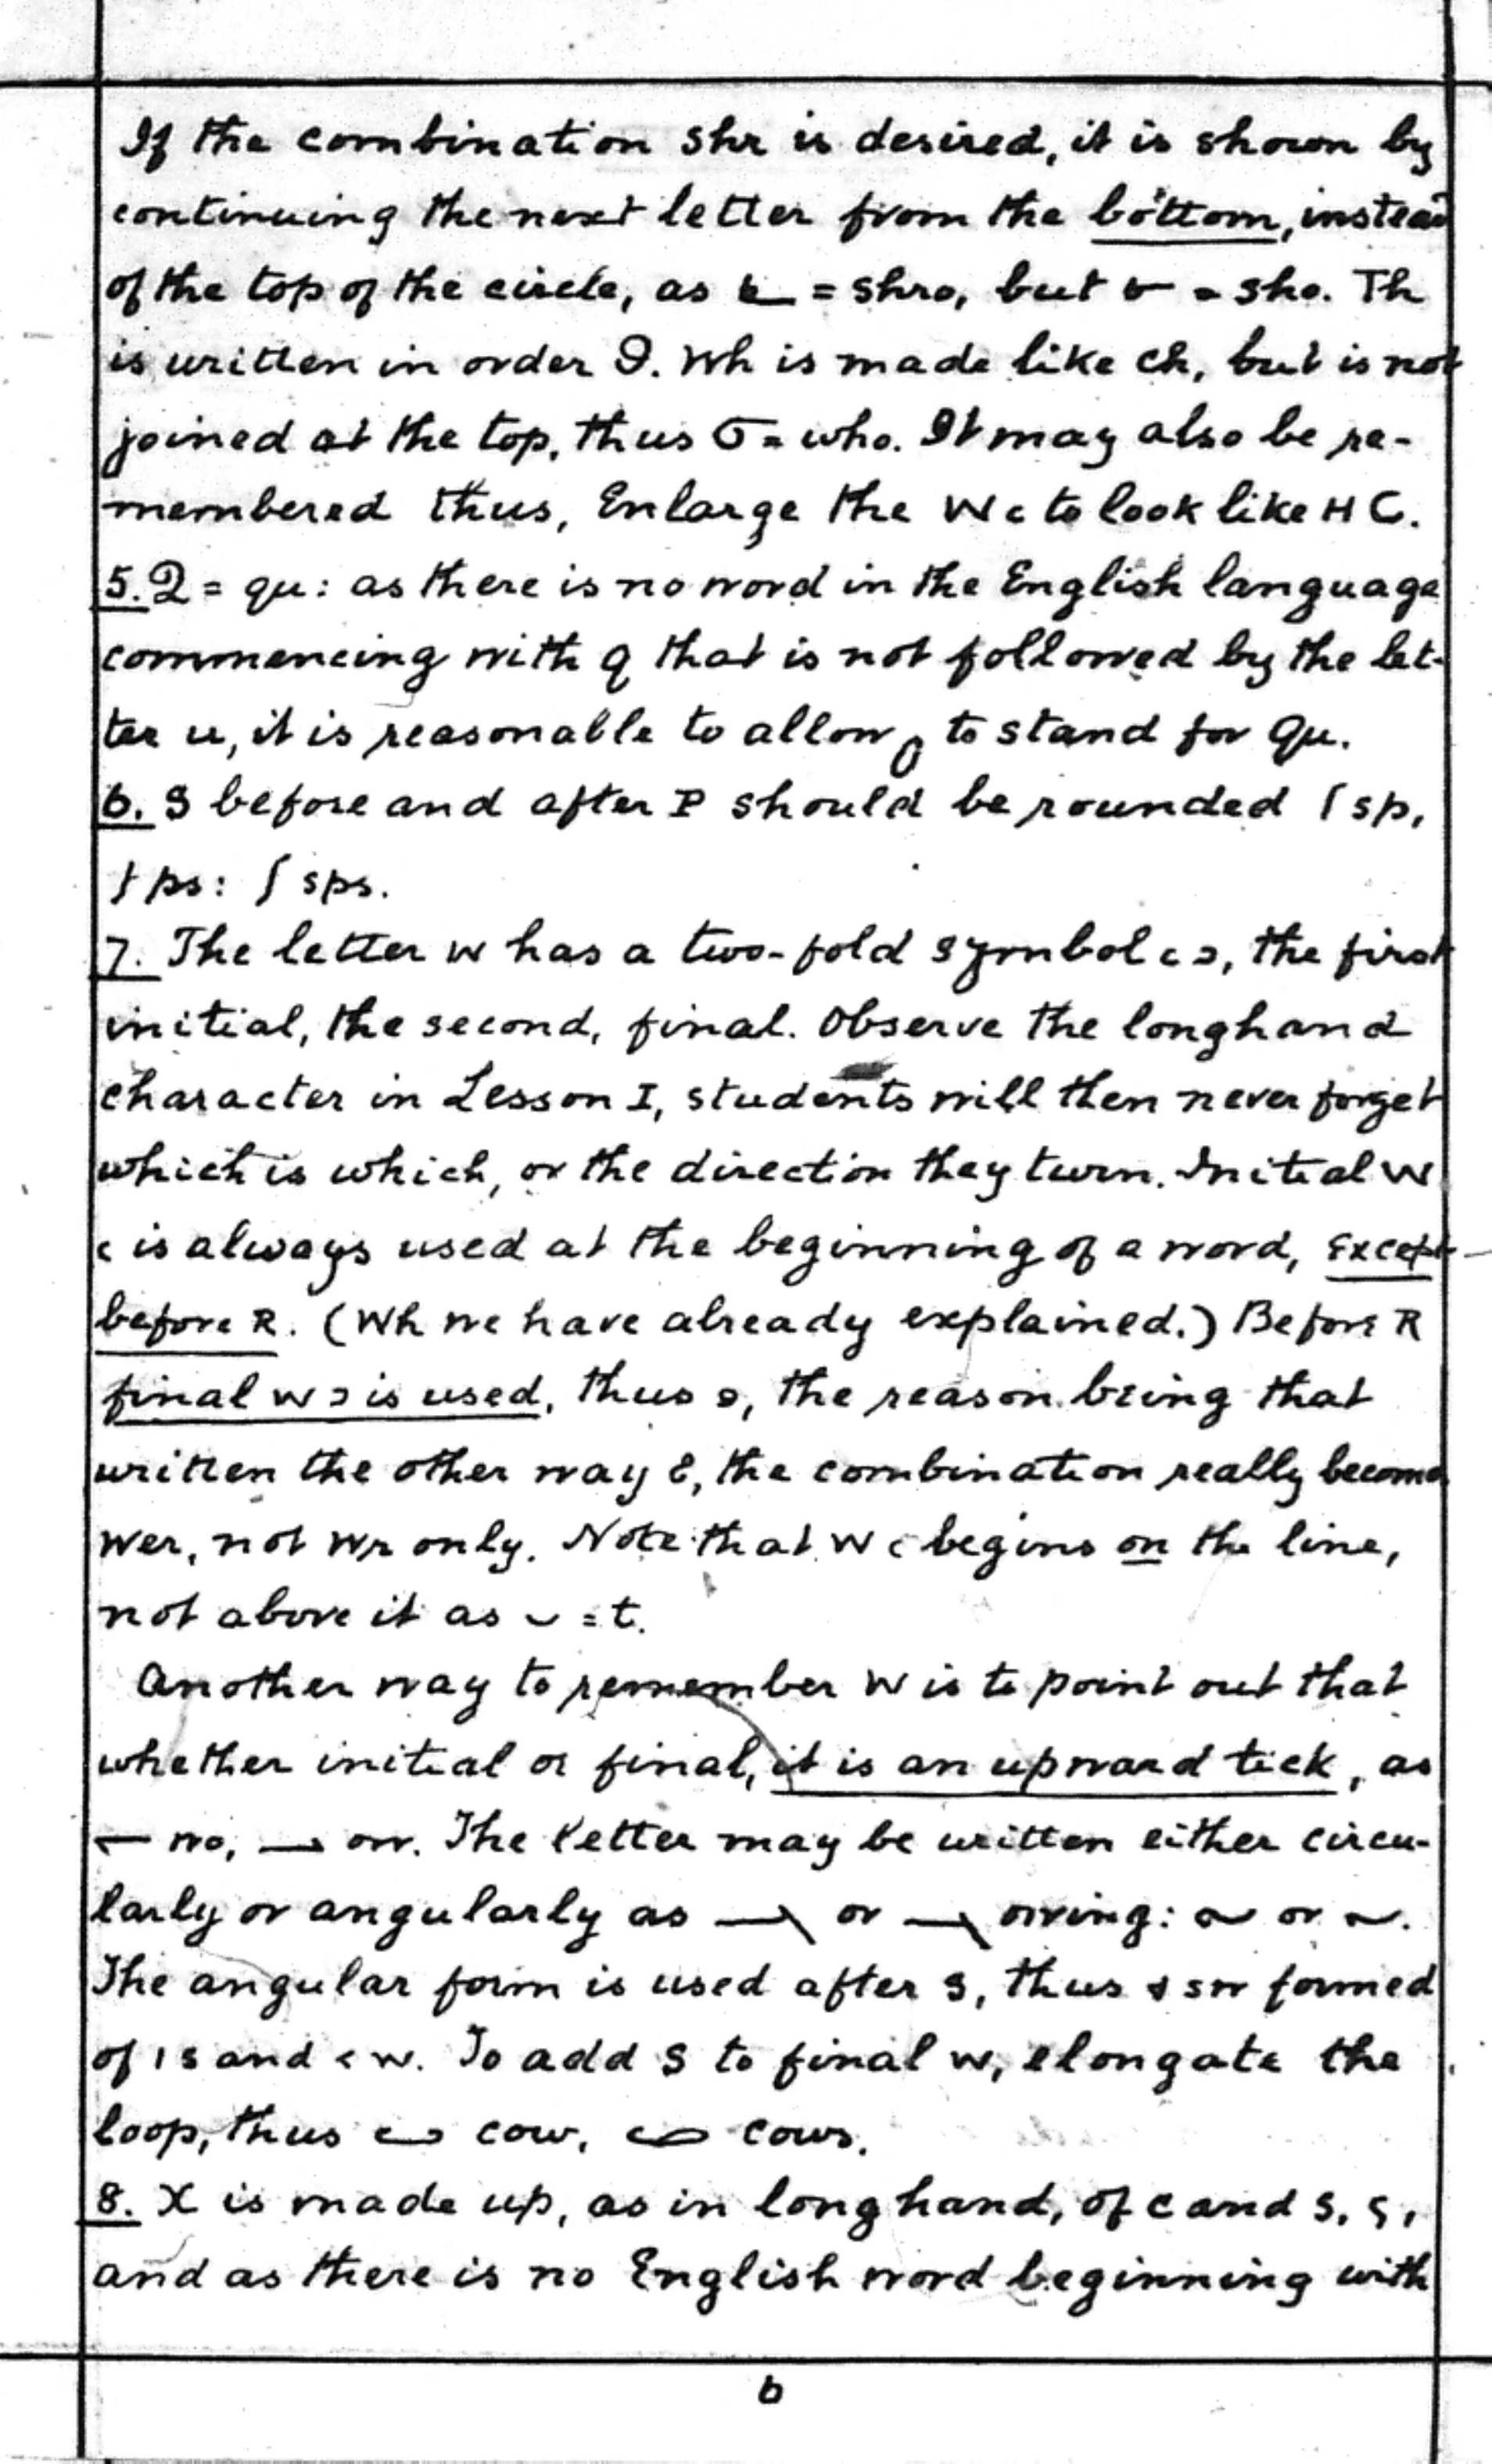 If the combination shr is desired, it is shown by
continuing the next letter from the bottom, instead
of the top of the circle, as = shro, but = sho. Th
is written in order. Wh is made like ch, but is not
joined at the top, thus = who. It may also be re-
membered thus, Enlarge the W c to look like H C.
5. Q = qu: as there is no word in the English language
commencing with q that is not followed by the let-
ter u, it is reasonable to allow to stand for Qu.
6. S before and after P should be rounded sp,
ps: sps.
7. The letter w has a two-fold symbol c ɔ, the first
initial, the second, final. Observe the longhand
character in Lesson I, students will then never forget
which is which, or the direction they turn. Initial W
c is always used at the beginning of a word, except
before R. (Wh we have already explained.) Before R
final w ɔ is used, thus, the reason being that
written the other way, the combination really become
wer, not wr only. Note that W c begins on the line,
not above it as ⌣ = t.
Another way to remember W is to point out that
whether initial or final, it is an upward tick, as
wo, ow. The letter may be written either circu-
larly or angularly as or owing: or.
The angular form is used after s, thus sw formed
of ı s and < w. To add S to final w, elongate the
loop, thus cow, cows.
8. X is made up, as in longhand, of c and s,
and as there is no English word beginning with
6